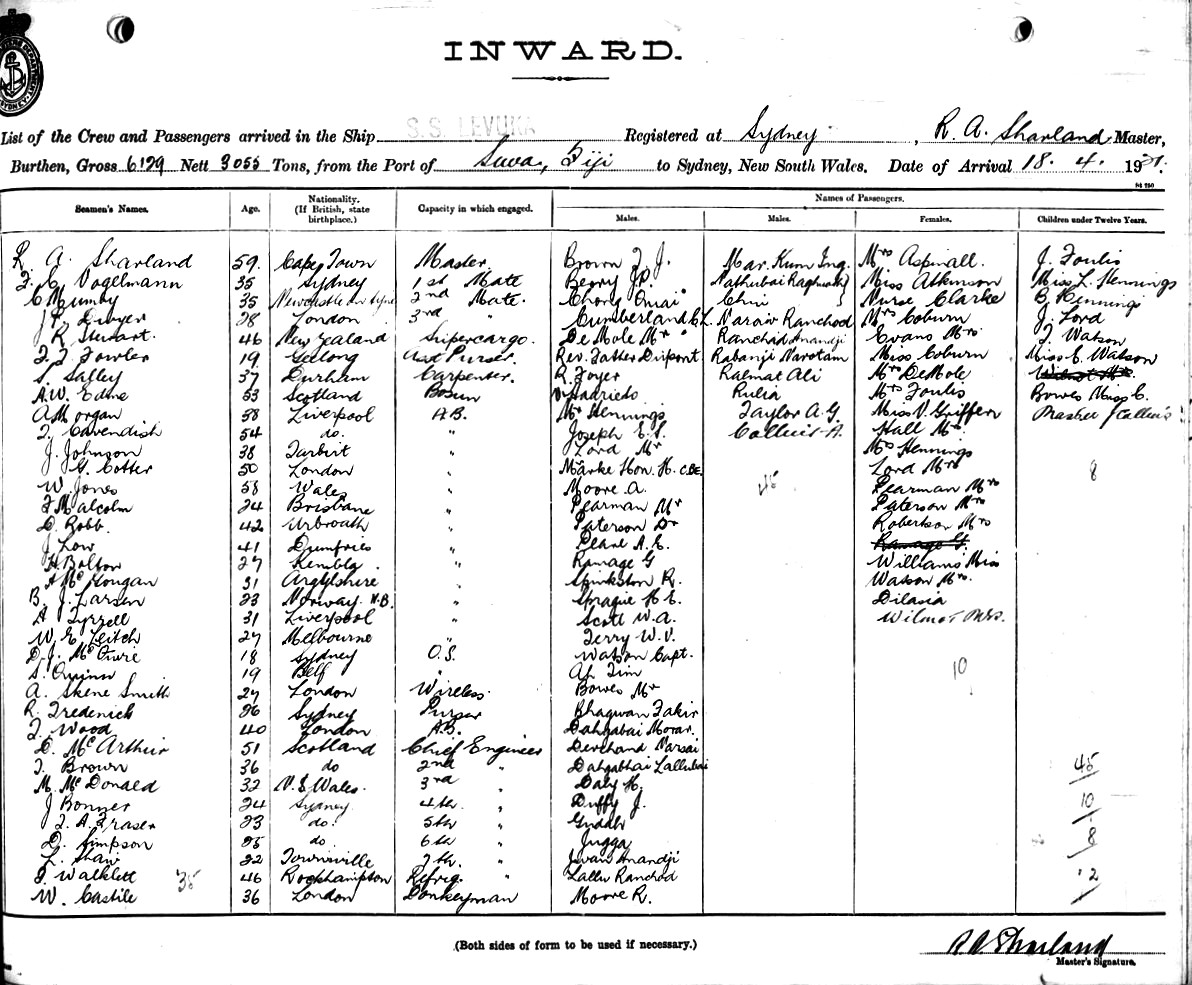 INWARD.
List of the Crew and Passengers arrived in the Ship S.S. LEVUKA Registered at Sydney, R. A. Sharland Master,
Burthen, Gross 6129 Nett 3055 Tons, from the Port of Suva, Fiji to Sydney, New South Wales. Date of Arrival 18. 4. 1921.
Names of Passengers.
Seamen's Names. Age. Nationality. (If British, state birthplace.) Capacity in which engaged. Males. Males. Females. Children under Twelve Years.
R. A. Sharland 59. Cape Town Master Brown F. J. Mar. Kum Ing. Mrs Aspinall. J. Foulis
F. C. Vogelmann 35 Sydney 1st Mate Berry Nathubai Miss Atkinson Miss L. Hennings
C Mumby 35 Newcastle 2nd Mate. Chong Nurse Clarke B. Hennings
J. Dwyer 28 London 3rd " Cumberland C L. Narain Ranchod Mrs Coburn J. Lord
R. Stewart 46 New Zealand Supercargo. De Mole Mr Ranchad Anandji Evans Mrs J. Watson
F. J. Fowler 19 Geelong Asst Purser. Rev. Father Rabanji Narotam Miss Coburn Miss C. Watson
S. Salley 37 Durham Carpenter. R. Foyer Ralmat Ali Mrs DeMole
A.W. 53 Scotland Bosun Rulia Mrs Foulis Bowes Miss C.
A Morgan 38 Liverpool A.B. Mr Hennings Taylor A. G. Miss V. Griffen
J. Cavendish 54 do. " Joseph E. Hall Mrs
J. Johnson 38 Tarbirt " Lord Mr Mrs Hennings
G. Cotter 50 London " Marke Hon. H. C.B.E. Lord Mrs 8
W. Jones 58 Wales " Moore A. 45 Pearman Mrs
F Malcolm 24 Brisbane " Pearman Mr Paterson Mrs
D. Robb. 42 Arbroath " Paterson Dr Robertson Mrs
J Low 41 Dumfries " Pearl A. E. Ramage G.
H Bolton 27 Kembla. " Ramage G Williams Miss
31 Argylshire " Spinkston R. Watson Mrs.
B. J. Larsen 23 Norway. N.B. " Sprague H. E. Dilasia
A Tyrrell 31 Liverpool " Scott W.A. Wilmot Mrs.
W. E. Leitch 27 Melbourne " Terry W. V.
D. J. 18 Sydney O.S. Watson Capt.
S. Quinn 19 Belf " Ah Tim 10
A. Skene Smith 27 London Wireless. Bowes Mr
R. Frederick 26 Sydney Purser Bhagwan Fakir
J. Wood 40 London A.B. Dahyabai Morar.
D. McArthur 51 Scotland Chief Engineer Devchand Narsai
J. Brown 36 do 2nd " Dahyabhai Lallubai 45
M. McDonald 32 N. S Wales. 3rd " Daly H.
J Bonner 24 Sydney. 4th. " Duffy J. 10
J. A. Fraser 23 do. 5th "
D. Simpson 25 do. 6th " Jugga 8
L. Shaw 22 Townsville 7th. " Jivan Anandji
35 46 Rockhampton Refrig. " Lallu Ranchod 2
W. Castile 36 London Donkeyman Moore R.
(Both sides of form to be used if necessary.)
R A Sharland
Master's Signature.